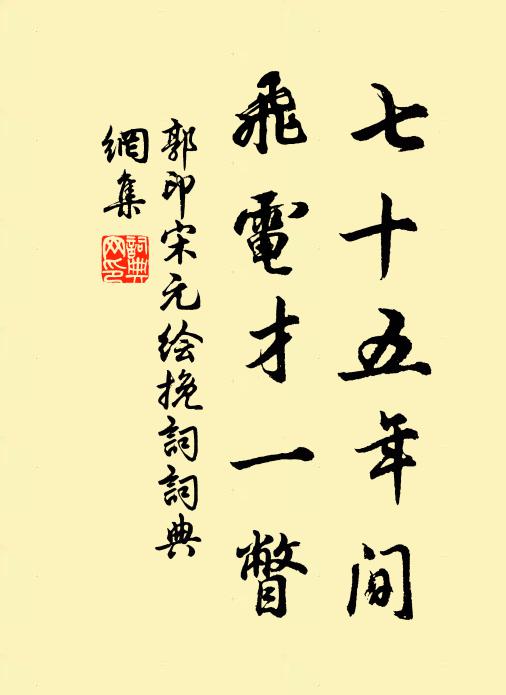 七十五年间
飛電才一瞥
郭印宋元绘挽詞詞典
網集
詞典
网印